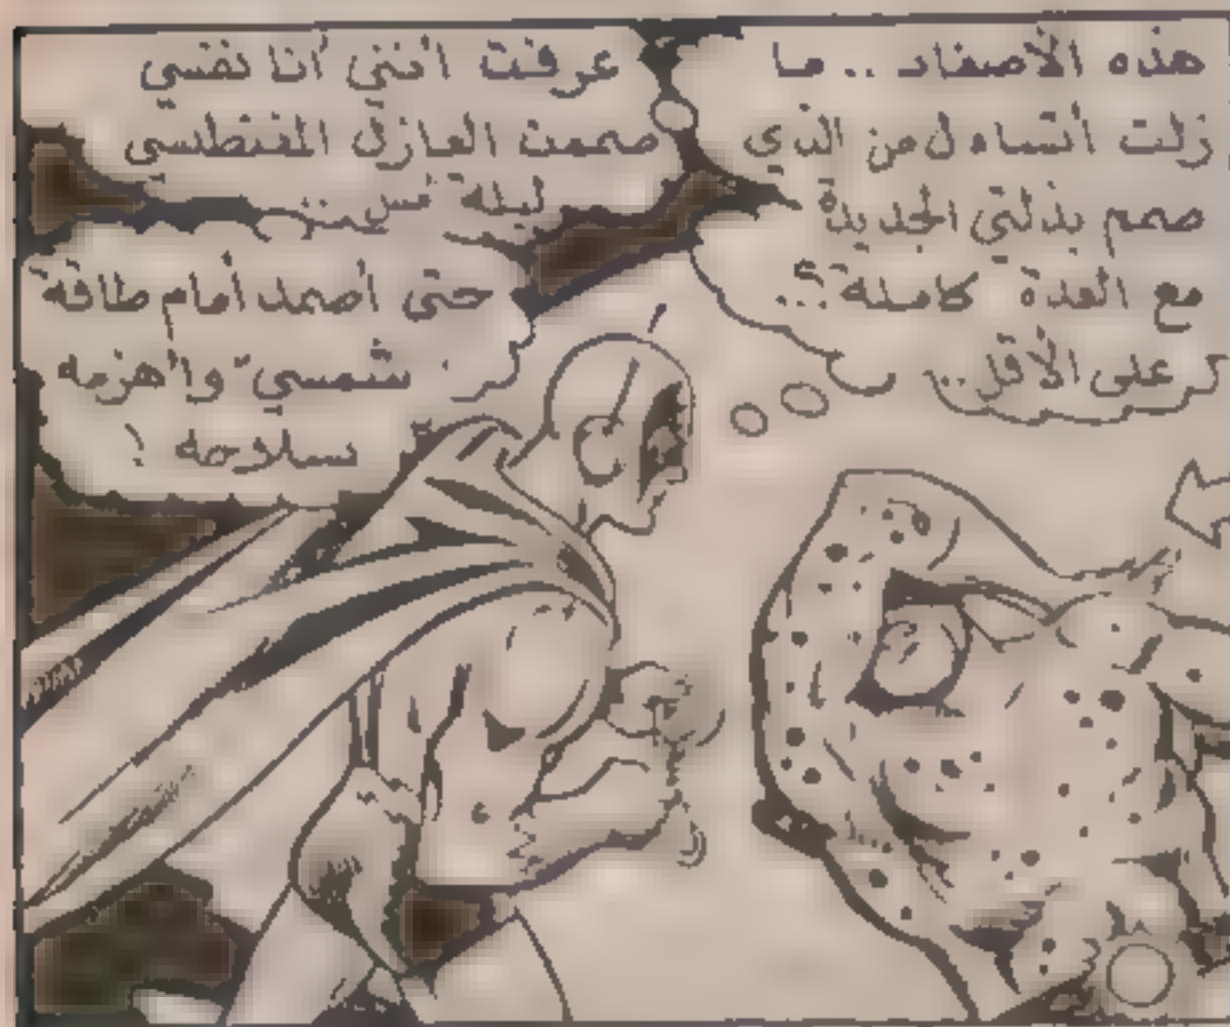 هذه الأصفاد .. ما
زلت أتساءل من الذي
صمم بذلتي الجديدة
مع العدة كاملة ؟..
على الأقل ..
عرفت أنني أنا نفسي
صممت العازل المغنطيسي
ليلة
حتى أصمد أمام طاقة
شمسي" وأهزمه
بسلاحه !